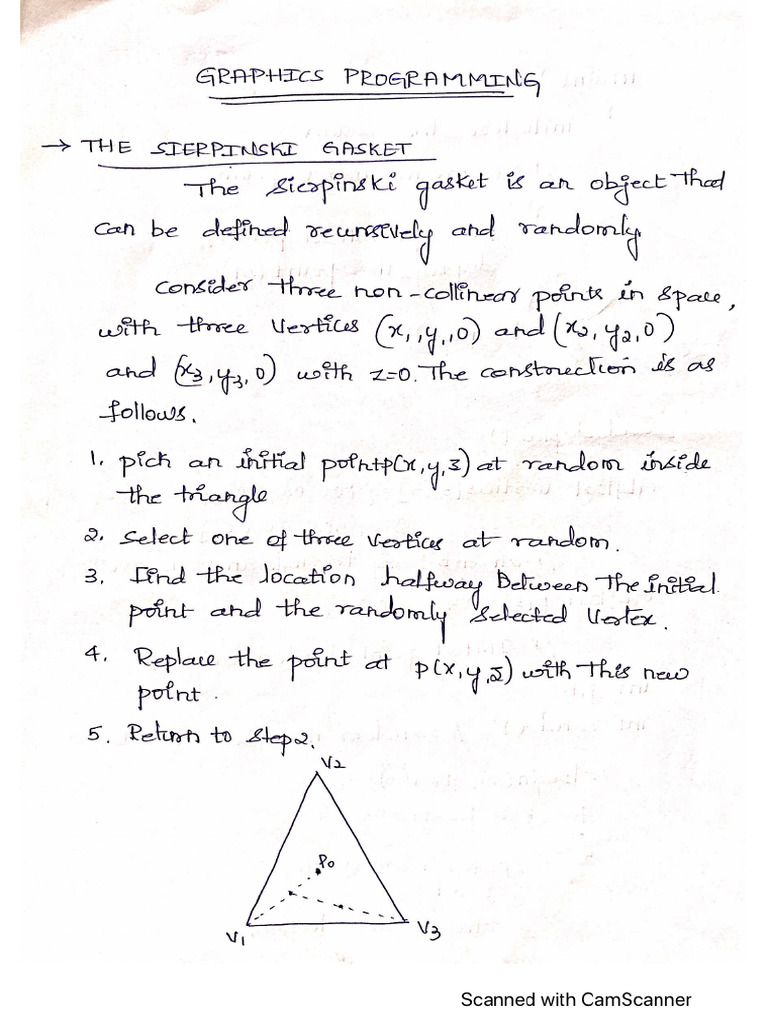 GRAPHICS PROGRAMMING
→ THE SIERPINSKI GASKET
The Sierpinski gasket is an object that
can be defined recursively and randomly
Consider three non-collinear points in space,
with three vertices (x1,y1,0) and (x2,y2,0)
and (x3,y3,0) with z=0. The construction is as
follows.
1. pick an initial point p(x,y,z) at random inside
the triangle
2. Select one of three vertices at random.
3. Find the location halfway Between the initial
point and the randomly selected vertex.
4. Replace the point at p(x,y,z) with this new
point.
5. Return to step2.
V2
P0
V1
V3
Scanned with CamScanner